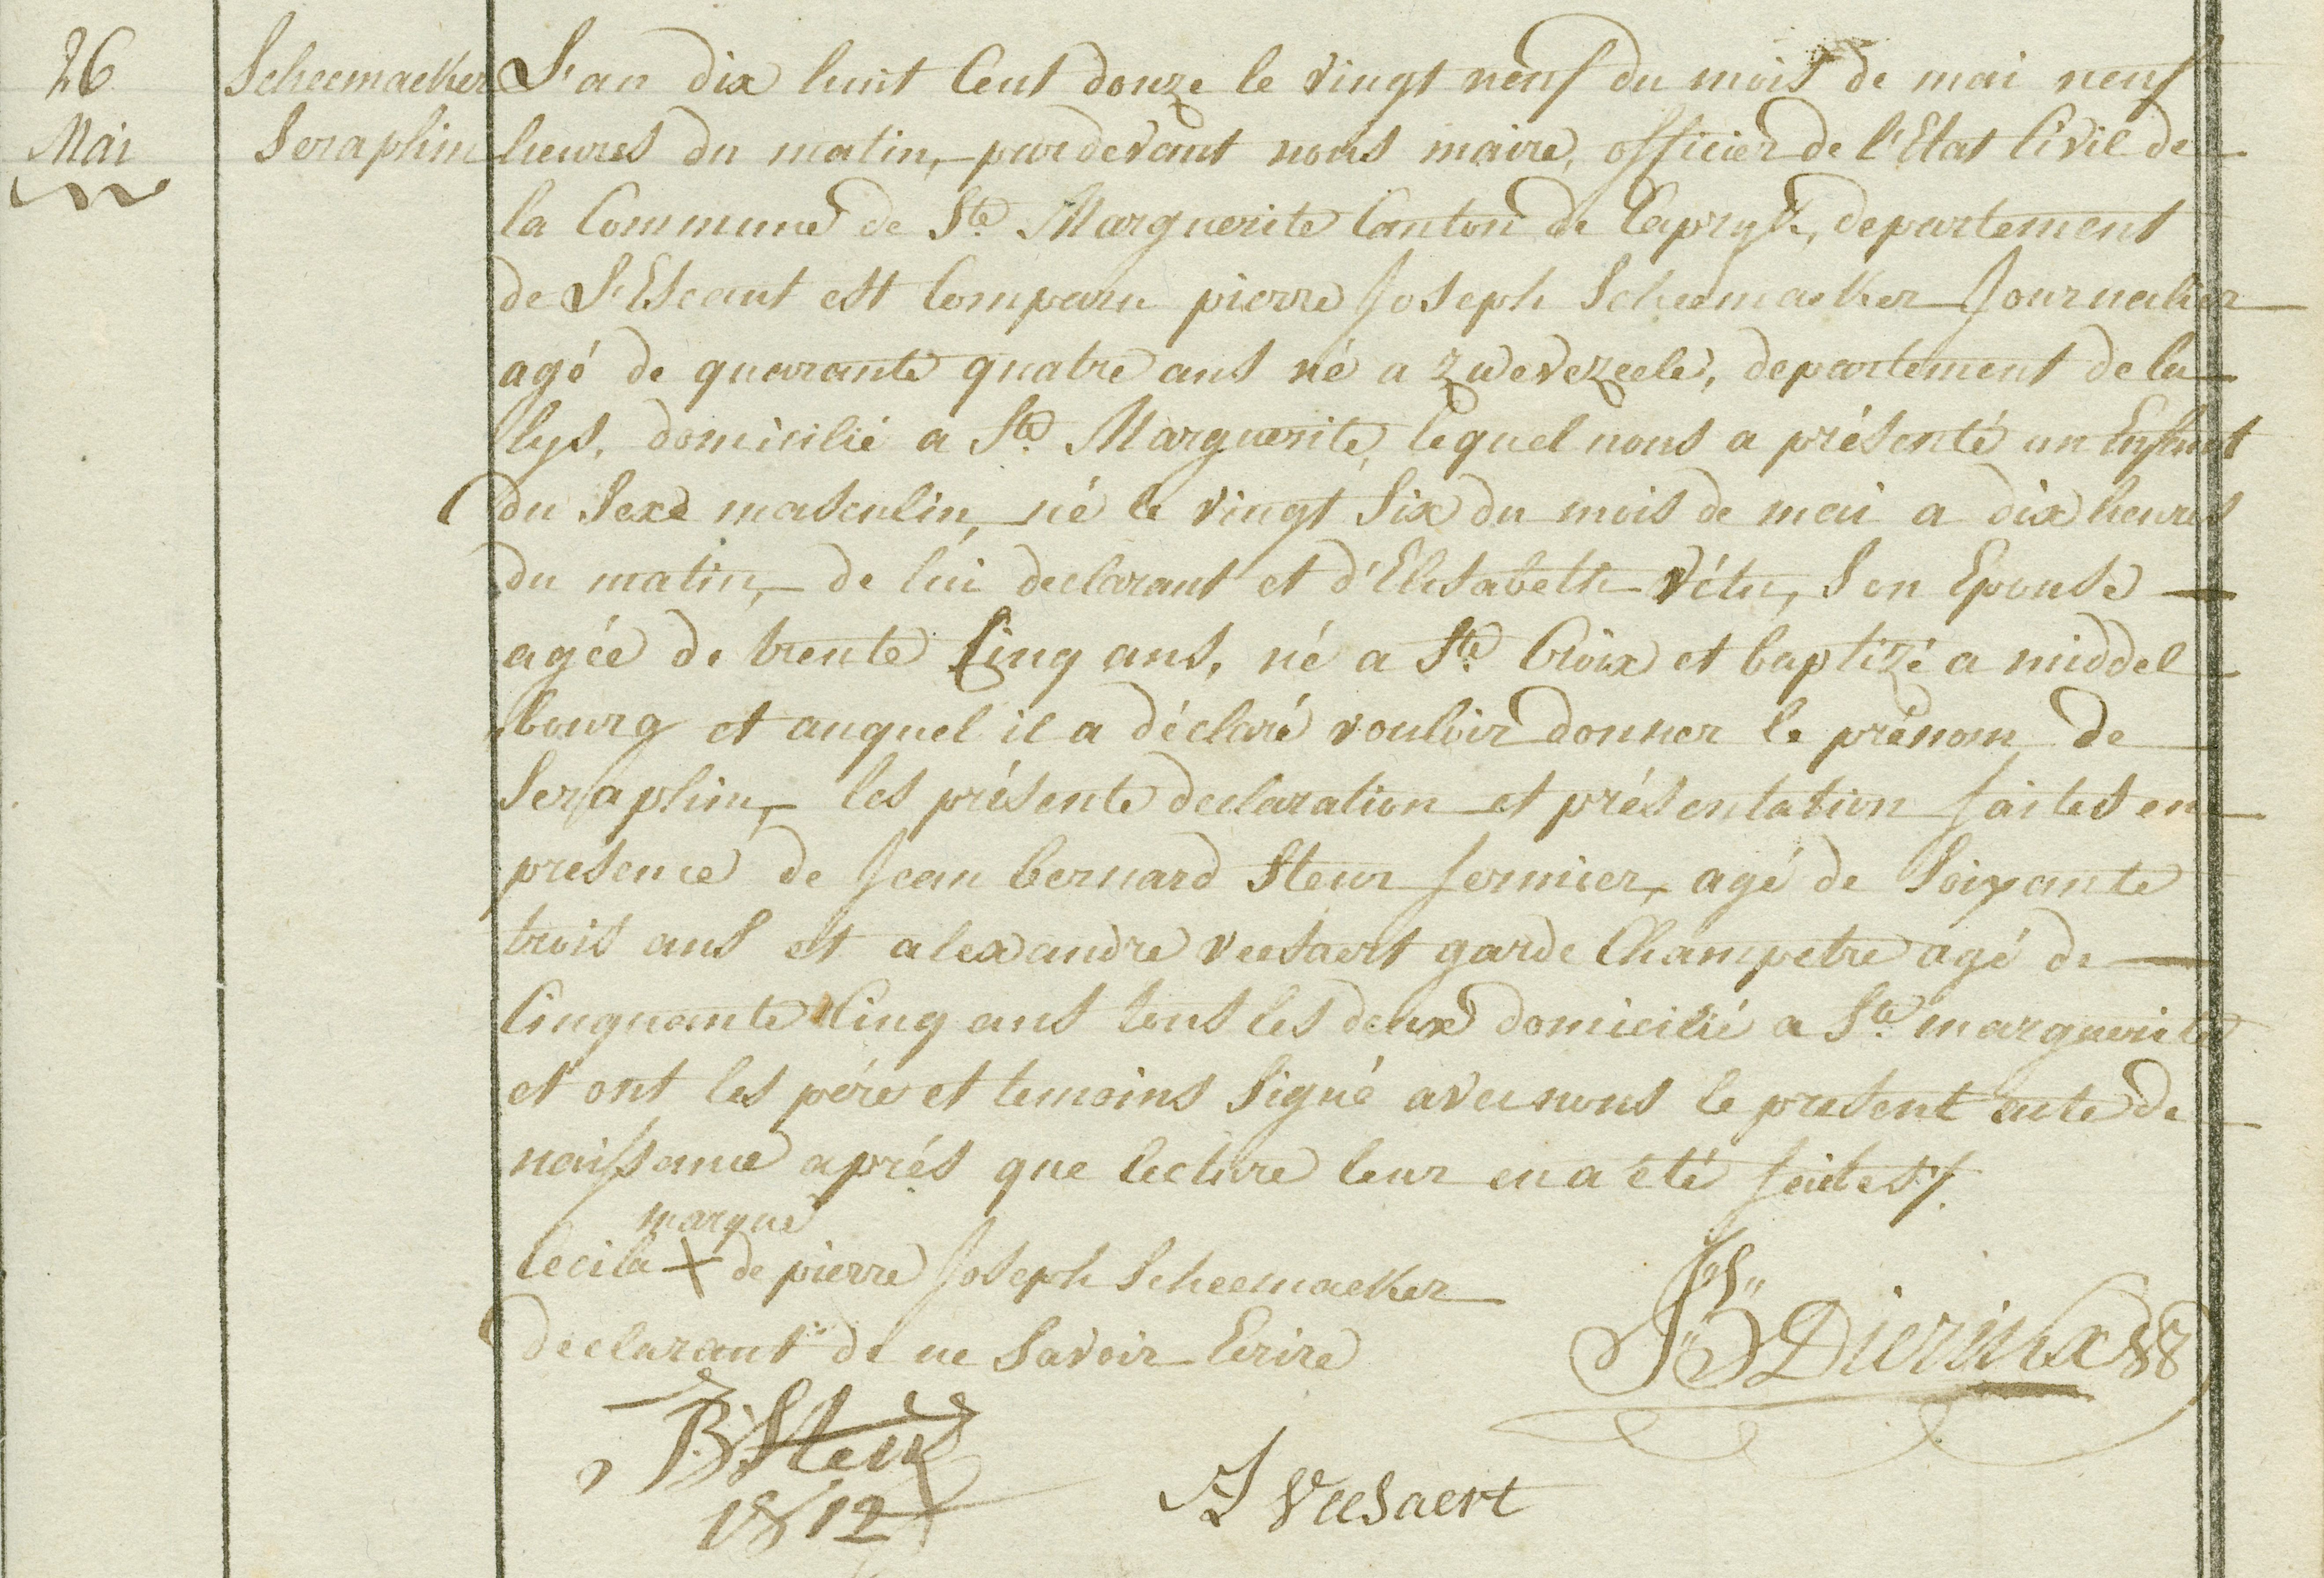 26
Mai
Scheemaeker
Seraphin
L'an dix huit Cent douze le vingt neuf du mois de mai neuf
heures du matin, pardevant nous maire, officier de l'Etat Civil de
la Commune de Ste Marguerite Canton de Capryk, departement
de L'Escaut est Comparu pierre Joseph Scheemaeker Journalier
agé de quarante quatre ans né a Zwevezeele, departement de la
lys, domicilié a Ste Marguerite, lequel nous a présenté un Enfant
du Sexe masculin, né le vingt Six du mois de mai a dix heures
du matin, de lui declarant et d'Elisabeth Vétu, Son Epouse
agée de trente Cinq ans, né a Ste Croix et baptizé a middel
bourg et auquel il a déclaré vouloir donner le prénom de
Seraphin, les présente declaration et présentation faites en
presence de Jean bernard Steur fermier, agé de Soixante
trois ans et alexandre veesaert garde Champetre agé de
Cinquante Cinq ans tous les deux domicilié a Ste marguerite
et ont les pére et temoins Signé avec nous le present acte de
naissance aprés que lecture leur en a été faites.
marque
Ceci la + de pierre Joseph Scheemaeker
declarant de ne Savoir Ecrire
JB Dierickx
B Steur
1812
A Veesaert